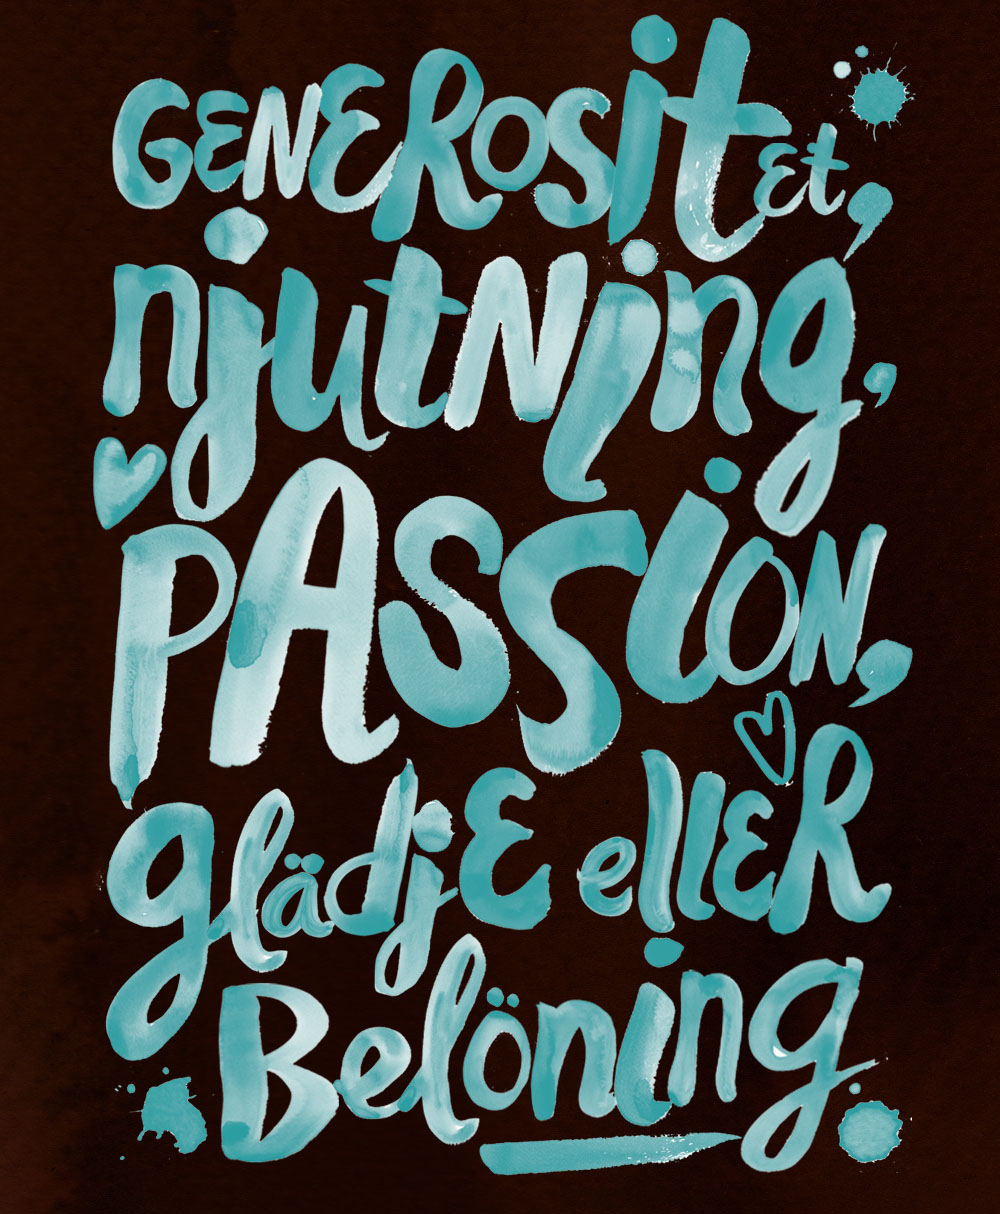 GENEROSitet,
njutNing,
PASSiON,
glädjE ellER
Belöning